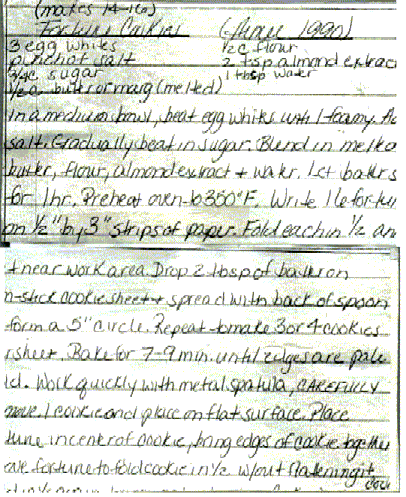 (makes 14-16)
Fortune Cookies (June 1990)
3 egg whites ½ c flour
pinch of salt 2 tsp. almond extrac
¾ c sugar 1 tbsp water
½ c butter or marg (melted)
In a medium bowl, beat egg whites until foamy. Ad
salt. Gradually beat in sugar. Blend in melted
butter, flour, almond extract + water. Let batter s
for 1 hr. Preheat oven to 350°F. Write 16 fortun
on ½" by 3" strips of paper. Fold each in ½ an
t near work area. Drop 2 tbsp of batter on
n-stick cookie sheet + spread with back of spoon
form a 5" circle. Repeat to make 3 or 4 cookies
r sheet. Bake for 7-9 min. until edges are pale
ld. Work quickly with metal spatula, CAREFULLY
move 1 cookie and place on flat surface. Place
tune in center of cookie, bring edges of cookie together
over fortune to fold cookie in ½ w/out flattening it